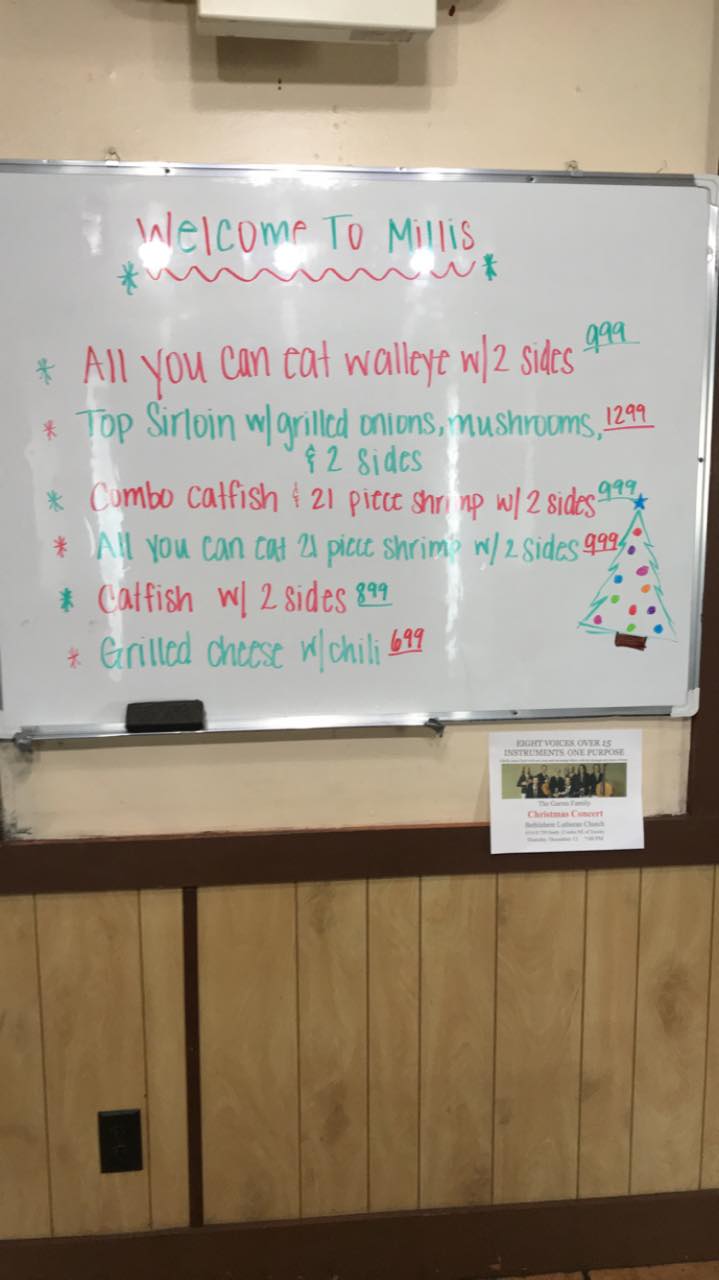 Welcome To Millis
All you can eat walleye w/2 sides 999
Top Sirloin w/grilled onions, mushrooms, 1299
& 2 sides
Combo catfish & 21 piece shrimp w/2 sides 999
All you can eat 21 piece shrimp w/2 sides 999
Catfish w/ 2 sides 899
Grilled cheese w/chili 699
EIGHT VOICES. OVER 15
INSTRUMENTS. ONE PURPOSE
The Family
Christmas Concert
Bethlehem Lutheran Church
Thursday, December 13 7:00 PM